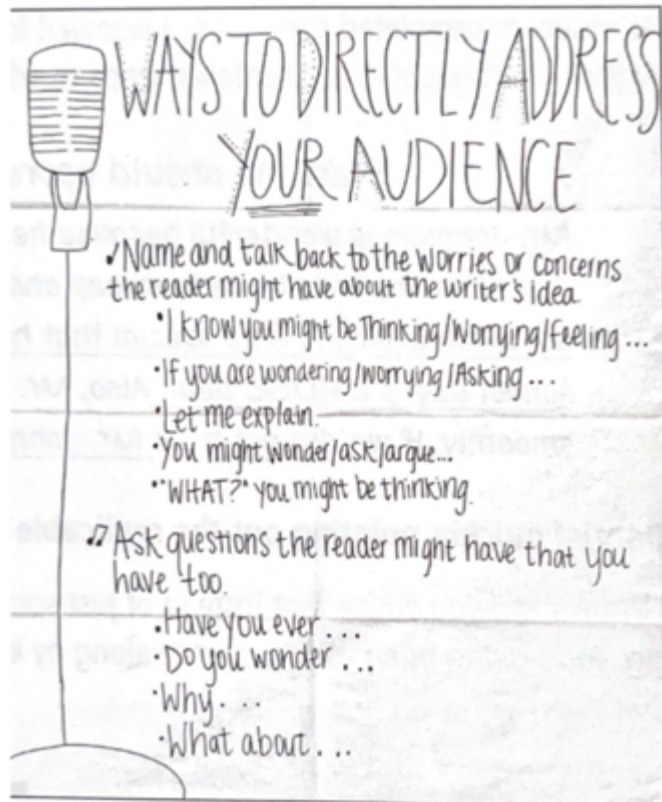 WAYS TO DIRECTLY ADDRESS
YOUR AUDIENCE
Name and talk back to the worries or concerns
the reader might have about the writer's idea.
•I know you might be Thinking/Worrying/Feeling ...
•If you are wondering/worrying/Asking ...
•Let me explain.
•You might wonder/ask/argue...
•"WHAT?" you might be thinking.
♫ Ask questions the reader might have that you
have too.
•Have you ever ...
•Do you wonder ...
•Why ...
•What about ...